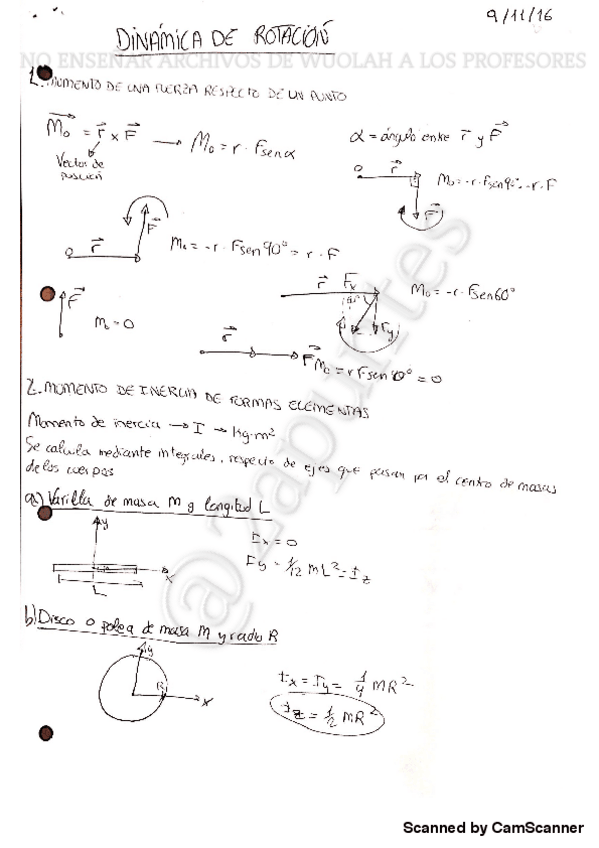 9/11/16
DINÁMICA DE ROTACIÓN
NO ENSEÑAR ARCHIVOS DE WUOLAH A LOS PROFESORES
1. MOMENTO DE UNA FUERZA RESPECTO DE UN PUNTO
M₀ = r x F → M₀ = r · F sen α
α = ángulo entre r y F
Vector de
posición
r
M₀ = -r · F sen 90° = -r · F
F
F
r
M₀ = -r · F sen 90° = r · F
r Fx
M₀ = -r · F sen 60°
F
M₀ = 0
Fy
r
F M₀ = r F sen 0° = 0
2. MOMENTO DE INERCIA DE FORMAS ELEMENTAS
Momento de inercia → I → kg·m²
Se calcula mediante integrales, respecto de ejes que pasan por el centro de masas
de los cuerpos
a) Varilla de masa M y longitud L
y
Ix = 0
Iy = 1/12 ML² = Iz
x
L
b) Disco o polea de masa M y radio R
y
R
x
Ix = Iy = 1/4 MR²
Iz = 1/2 MR²
@zapuntes
Scanned by CamScanner